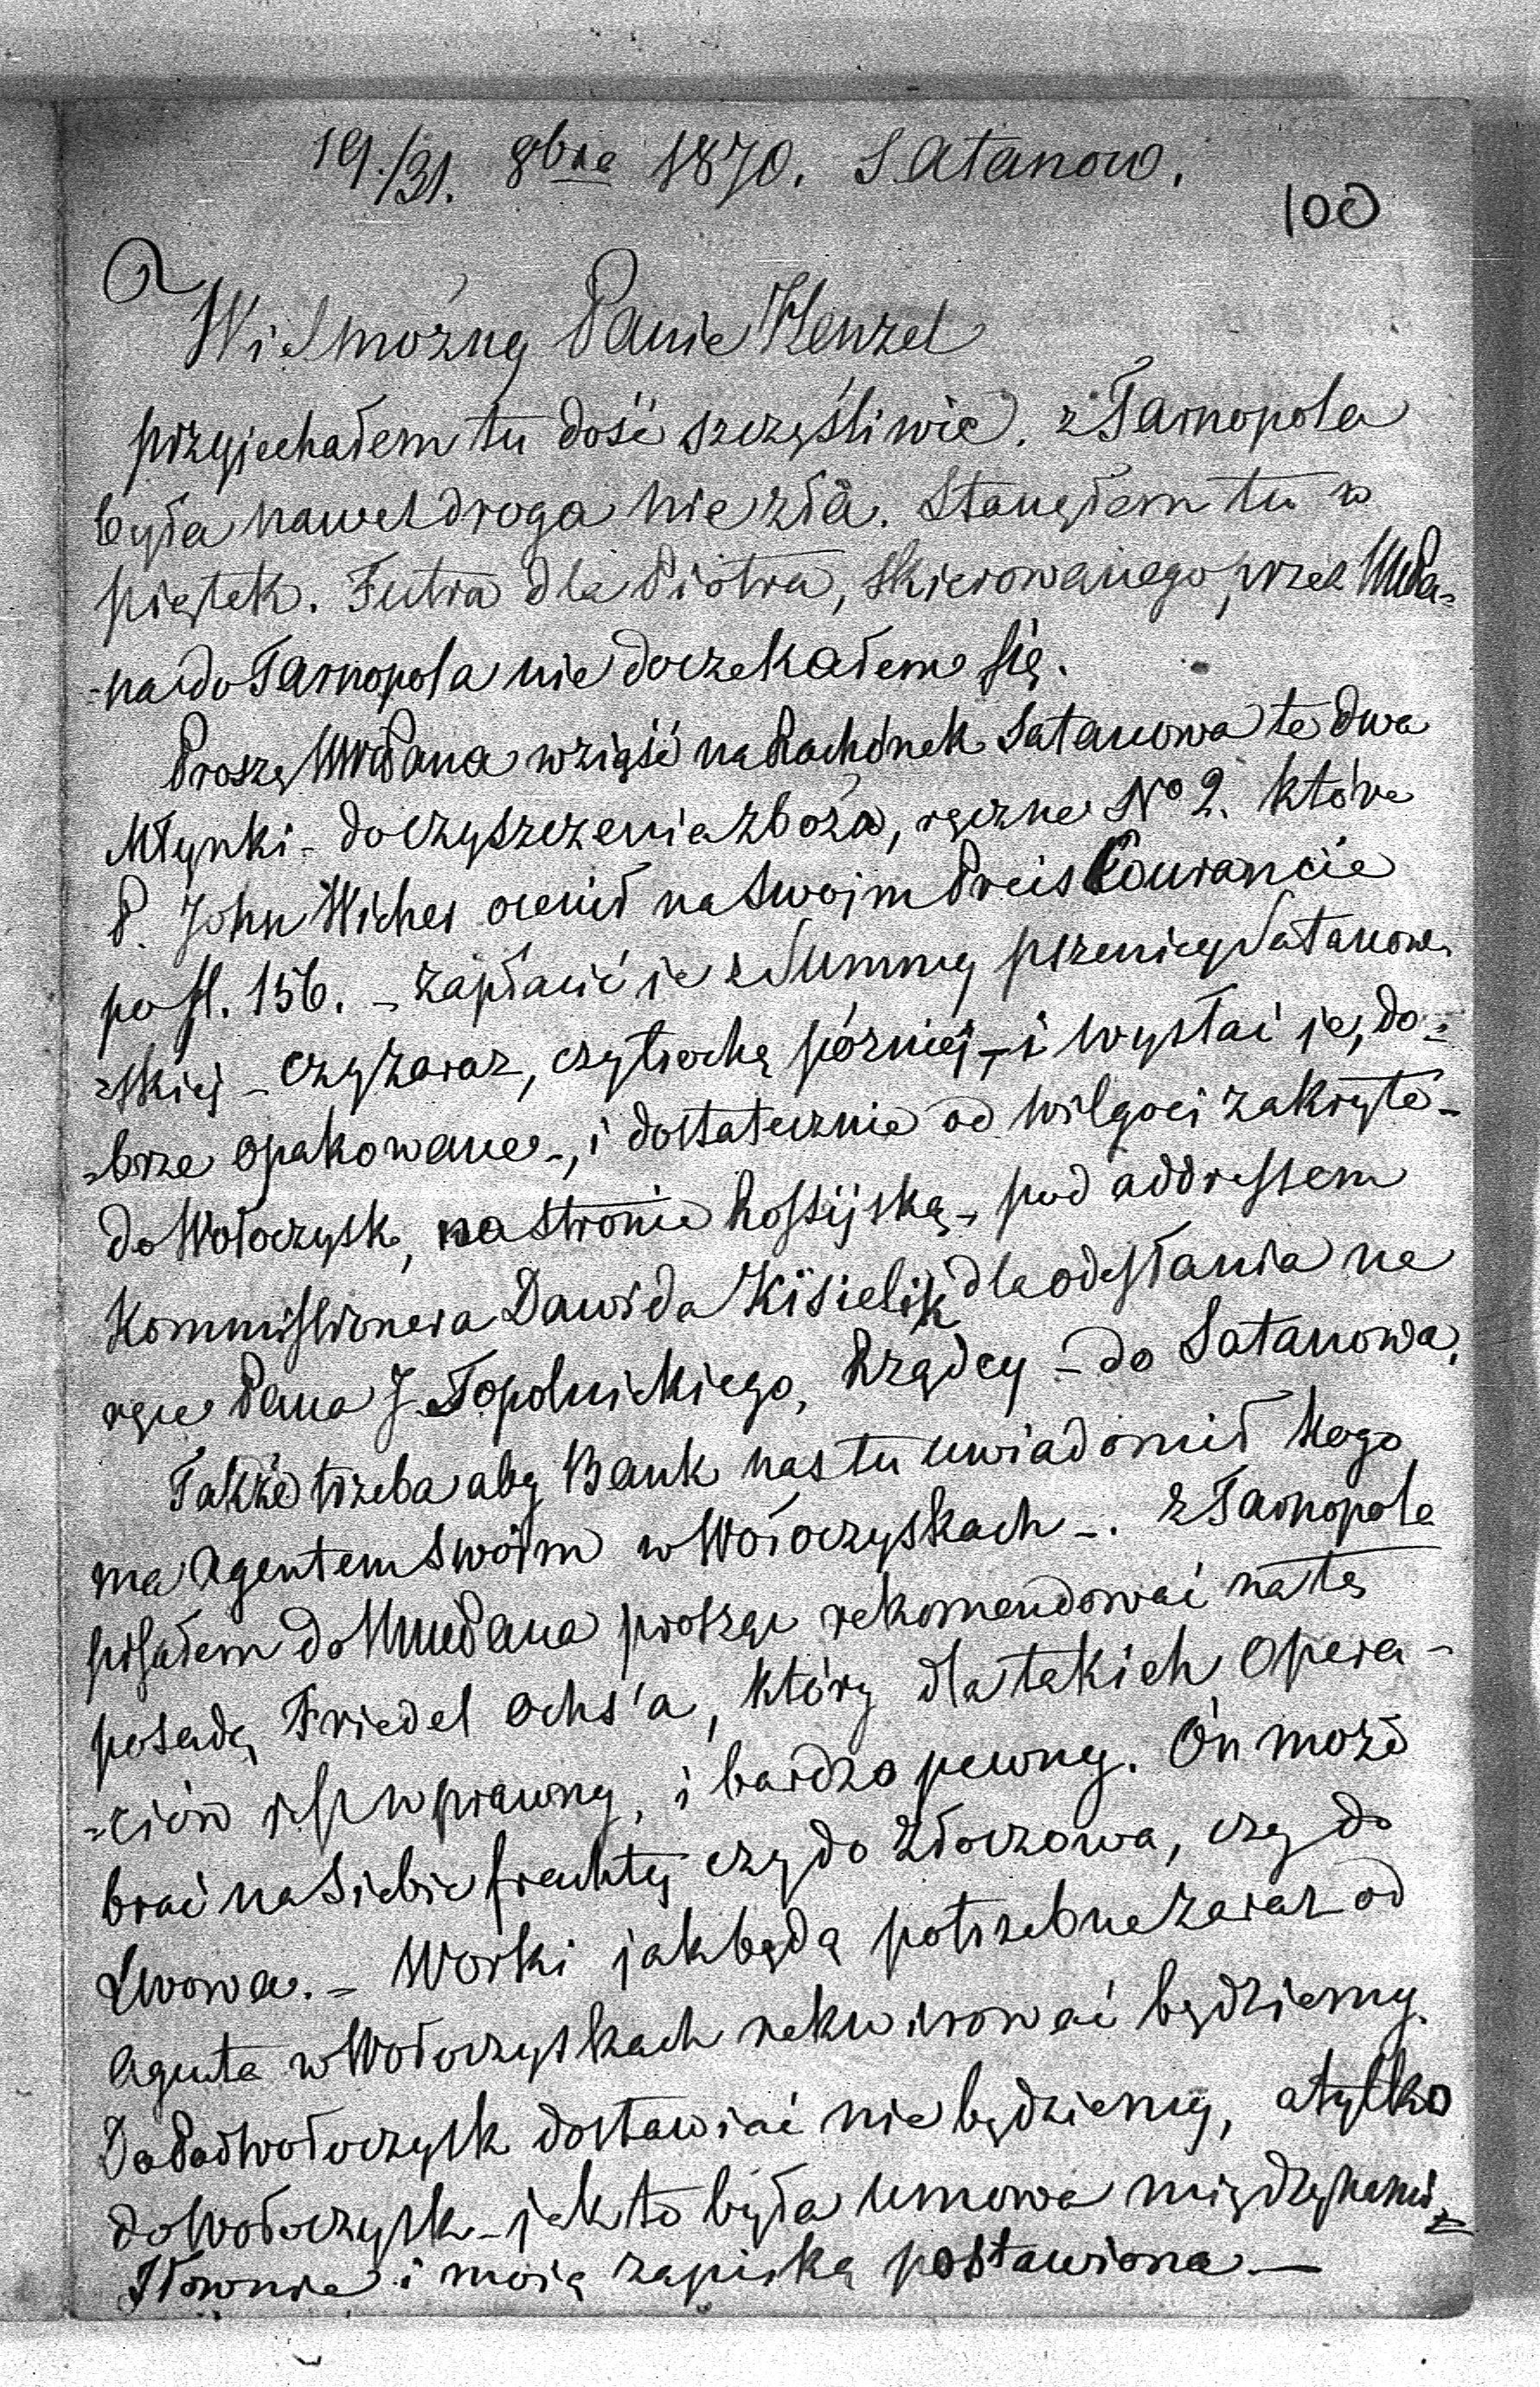 19./31. 8bre 1870. Satanow.
100
Wielmożny Panie Henzel
przyjechałem tu dość szczęśliwie. z Tarnopola
była nawet droga nie zła. Stanąłem tu w
piątek. Futra dla Piotra, skierowanego przez WMPa-
-na do Tarnopola nie doczekałem się.
Proszę WMPana wziąść na Rachónek Satanowa te dwa
Młynki - do czyszczenia zboża, ręczne No 2. które
P. John Wicher ocenił na swoim Preis Courancie
po fl. 156. - zapłacić je z Summy pszenicy Satanow
-skiej - czy zaraz, czy trochę pózniej - i wysłać je, do-
-brze opakowane -, i dostatecznie od wilgoci zakryte -
do Wołoczysk, na stronie Rossijską - pod addressem
Kommissionera Dawida Kisielik dla odesłania na
ręce Pana J. Topolnickiego, Rządcy - do Satanowa.
Także trzeba aby Bank nas tu uwiadomił kogo
ma Agentem swoim w Wołoczyskach -. z Tarnopola
pisałem do WMPana prosząc rekomendować na tę
posadę Friedel Ochs'a, który dla takich Opera-
-ciów jest wprawny, i bardzo pewny. On może
brać na siebie frachty czy do Złoczowa, czy do
Lwowa. - Worki jak będą potrzebne zaraz od
Agenta w Wołoczyskach rekwirować będziemy.
Do Podwołoczysk dostawiać nie będziemy, a tylko
do Wołoczysk - jak to była umowa między nami
słownie i moią zapiską postawiona -